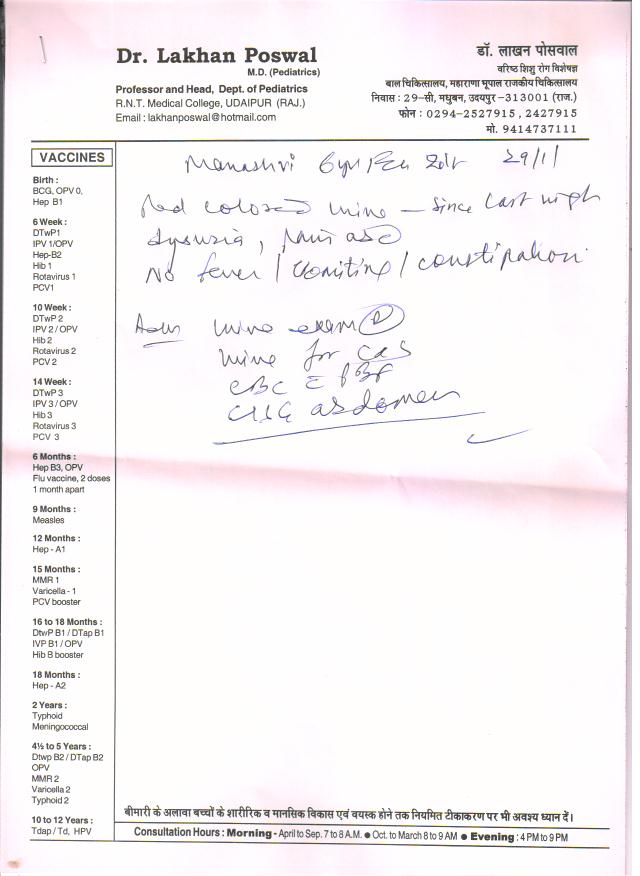 Dr. Lakhan Poswal
M.D. (Pediatrics)
Professor and Head, Dept. of Pediatrics
R.N.T. Medical College, UDAIPUR (RAJ.)
Email : lakhanposwal@hotmail.com
डॉ. लाखन पोसवाल
वरिष्ठ शिशु रोग विशेषज्ञ
बाल चिकित्सालय, महाराणा भूपाल राजकीय चिकित्सालय
निवास : 29-सी, मधुबन, उदयपुर-313001 (राज.)
फोन : 0294-2527915, 2427915
मो. 9414737111
VACCINES
Birth :
BCG, OPV 0,
Hep B1
6 Week :
DTwP1
IPV 1/OPV
Hep-B2
Hib 1
Rotavirus 1
PCV1
10 Week :
DTwP 2
IPV 2 / OPV
Hib 2
Rotavirus 2
PCV 2
14 Week :
DTwP 3
IPV 3 / OPV
Hib 3
Rotavirus 3
PCV 3
6 Months :
Hep B3, OPV
Flu vaccine, 2 doses
1 month apart
9 Months :
Measles
12 Months :
Hep - A1
15 Months :
MMR 1
Varicella - 1
PCV booster
16 to 18 Months :
DtwP B1 / DTap B1
IVP B1 / OPV
Hib B booster
18 Months :
Hep - A2
2 Years :
Typhoid
Meningococcal
4½ to 5 Years :
Dtwp B2 / DTap B2
OPV
MMR 2
Varicella 2
Typhoid 2
10 to 12 Years :
Tdap / Td, HPV
Manashri 6yr 29/1/
Red colored urine - since last night
dysuria, pain abd
No fever / Vomiting / constipation
Adv urine exam
urine for C&S
CBC c PBF
USG abdomen
बीमारी के अलावा बच्चों के शारीरिक व मानसिक विकास एवं वयस्क होने तक नियमित टीकाकरण पर भी अवश्य ध्यान दें।
Consultation Hours : Morning - April to Sep. 7 to 8 A.M. ● Oct. to March 8 to 9 AM ● Evening : 4 PM to 9 PM